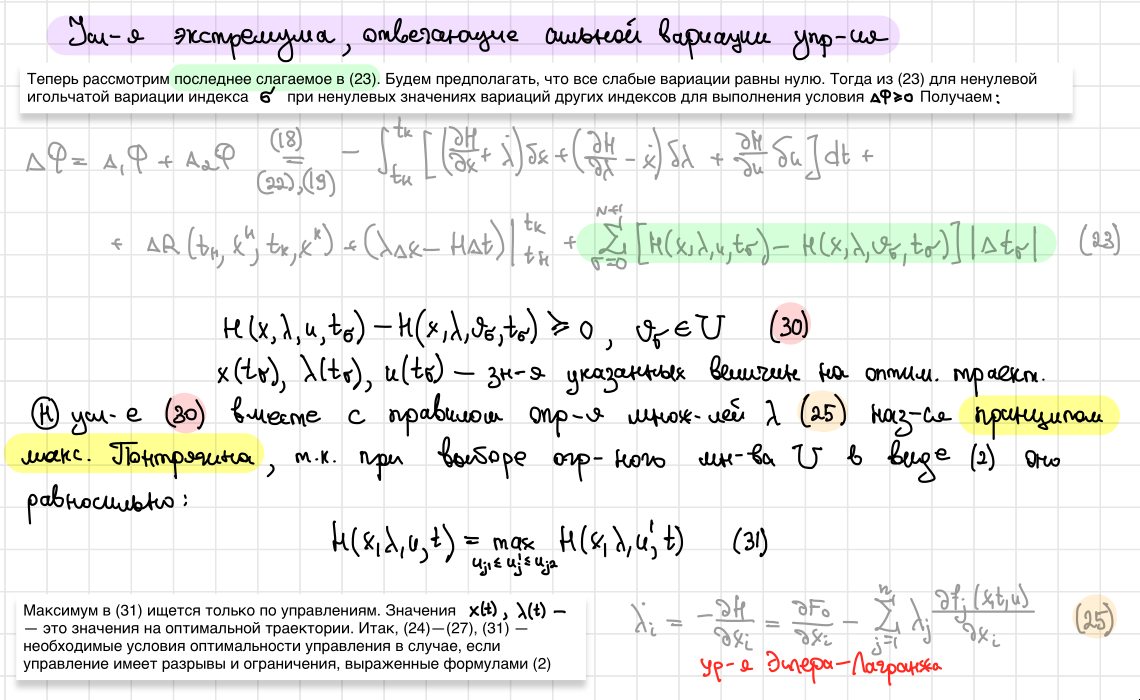 Усл-я экстремума, отвечающие сильной вариации упр-ия
Теперь рассмотрим последнее слагаемое в (23). Будем предполагать, что все слабые вариации равны нулю. Тогда из (23) для ненулевой
игольчатой вариации индекса σ при ненулевых значениях вариаций других индексов для выполнения условия ΔΦ⩾0 Получаем:
ΔΦ = Δ₁Φ + Δ₂Φ (18) = (22),(19) − ∫_{tн}^{tк} [(∂H/∂x + λ̇)δx + (∂H/∂λ − ẋ)δλ + ∂H/∂u δu] dt +
+ ΔR(tн, xᴴ, tк, xᴷ) + (λΔx − HΔt)|_{tн}^{tк} + Σ_{σ=0}^{N+1} [H(x,λ,u,tσ) − H(x,λ,ϑσ,tσ)] |Δtσ| (23)
H(x,λ,u,tσ) − H(x,λ,ϑσ,tσ) ⩾ 0, ϑσ ∈ U (30)
x(tσ), λ(tσ), u(tσ) — зн-я указанных величин на оптим. траект.
Ⓗ усл-е (30) вместе с правилом опр-я множ-лей λ (25) наз-ся принципом
макс. Понтрягина, т.к. при выборе огр-ного мн-ва U в виде (2) оно
равносильно:
H(x,λ,u,t) = max_{uj1 ≤ uj' ≤ uj2} H(x,λ,u',t) (31)
Максимум в (31) ищется только по управлениям. Значения x(t), λ(t) —
— это значения на оптимальной траектории. Итак, (24)—(27), (31) —
необходимые условия оптимальности управления в случае, если
управление имеет разрывы и ограничения, выраженные формулами (2)
λ̇i = −∂H/∂xi = ∂F₀/∂xi − Σ_{j=1}^{n} λj ∂fj(x,t,u)/∂xi (25)
ур-я Эйлера-Лагранжа